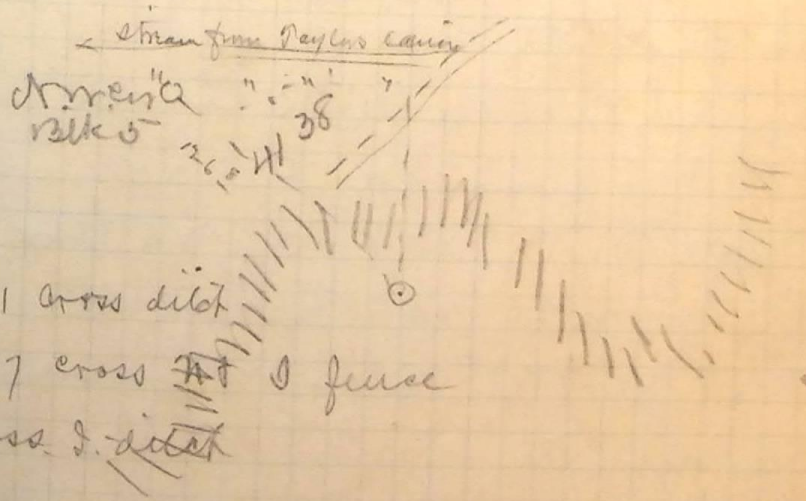 stream from Taylors Canon
" " " "
Blk 5
38
41
1 cross ditch
7 cross fence
ss. I. ditch